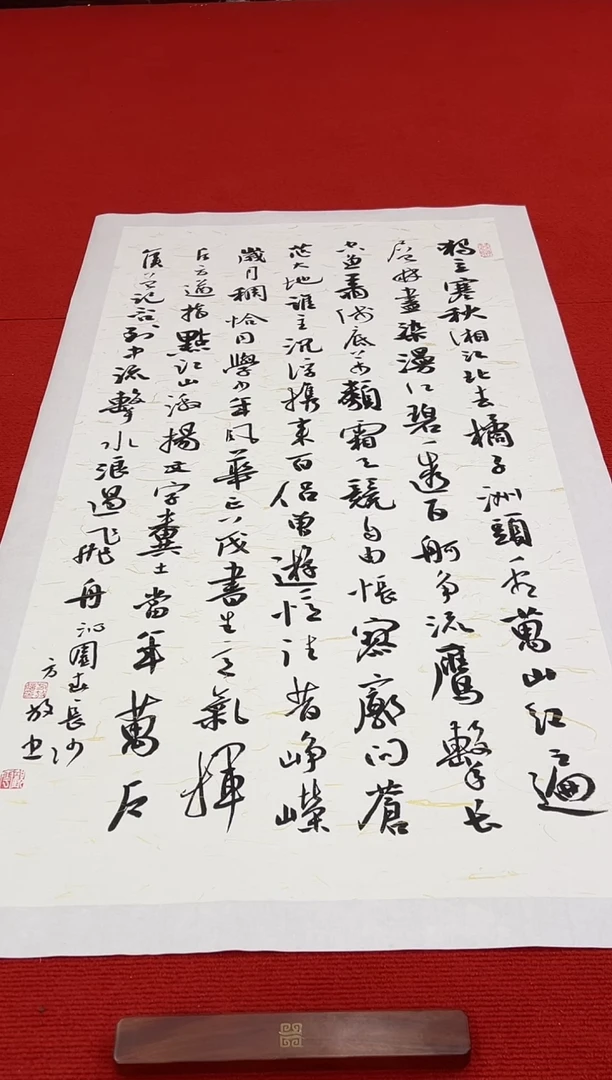 独立寒秋湘江北去橘子洲頭看萬山红遍
层林盡染漫江碧透百舸争流鹰擊长
空鱼翔浅底万類霜天競自由悵寥廓问蒼
茫大地谁主沉浮携来百侣曾遊忆往昔峥嵘
歲月稠恰同學少年风華正茂書生意氣揮
斥方遒指點江山激揚文字糞土當年萬户
侯曾记否到中流擊水浪遏飞舟 沁園春長沙
方放书